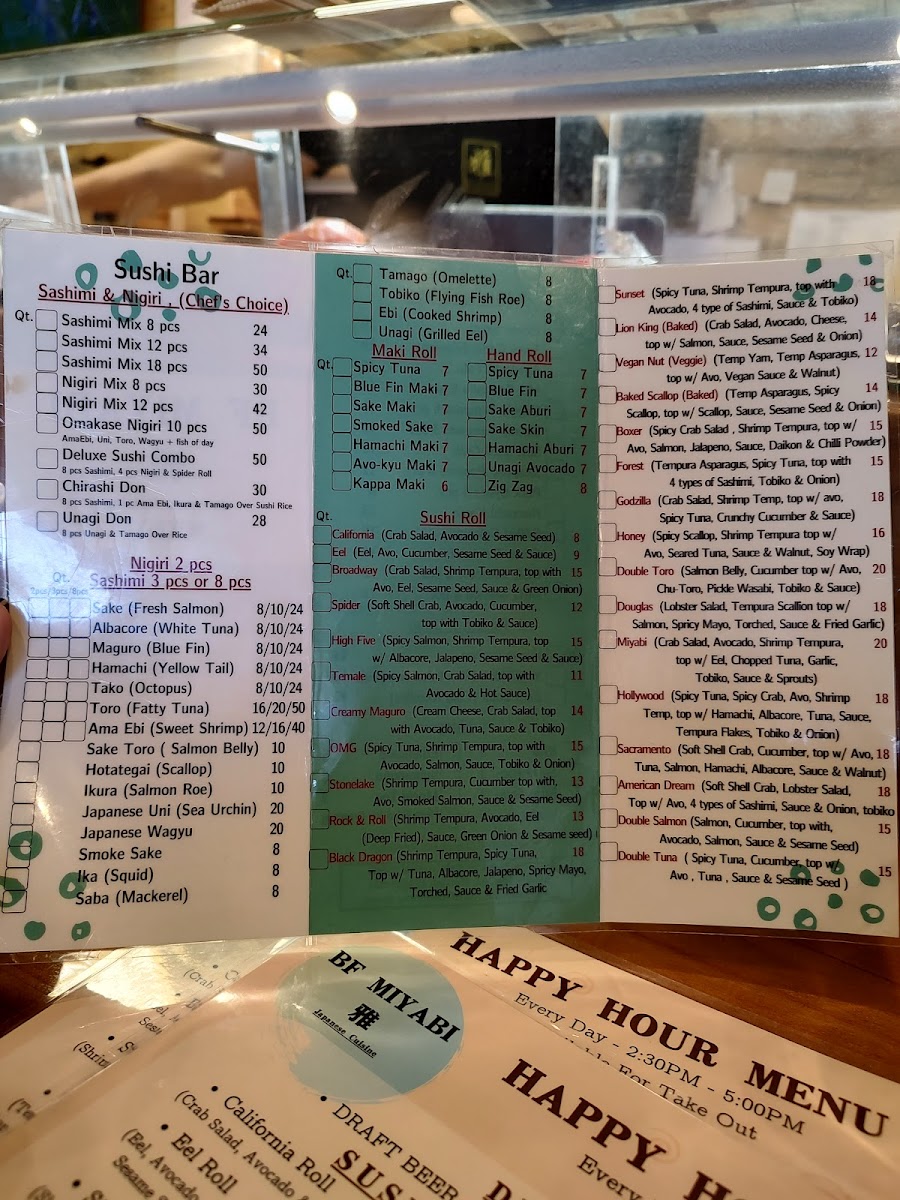 Sushi Bar
Sashimi & Nigiri , (Chef's Choice)
Qt.
Sashimi Mix 8 pcs 24
Sashimi Mix 12 pcs 34
Sashimi Mix 18 pcs 50
Nigiri Mix 8 pcs 30
Nigiri Mix 12 pcs 42
Omakase Nigiri 10 pcs 50
AmaEbi, Uni, Toro, Wagyu + fish of day
Deluxe Sushi Combo 50
8 pcs Sashimi, 4 pcs Nigiri & Spider Roll
Chirashi Don 30
8 pcs Sashimi, 1 pc Ama Ebi, Ikura & Tamago Over Sushi Rice
Unagi Don 28
8 pcs Unagi & Tamago Over Rice
Nigiri 2 pcs
Qt. Sashimi 3 pcs or 8 pcs
2pcs/3pcs/8pcs
Sake (Fresh Salmon) 8/10/24
Albacore (White Tuna) 8/10/24
Maguro (Blue Fin) 8/10/24
Hamachi (Yellow Tail) 8/10/24
Tako (Octopus) 8/10/24
Toro (Fatty Tuna) 16/20/50
Ama Ebi (Sweet Shrimp) 12/16/40
Sake Toro ( Salmon Belly) 10
Hotategai (Scallop) 10
Ikura (Salmon Roe) 10
Japanese Uni (Sea Urchin) 20
Japanese Wagyu 20
Smoke Sake 8
Ika (Squid) 8
Saba (Mackerel) 8
Qt. Tamago (Omelette) 8
Tobiko (Flying Fish Roe) 8
Ebi (Cooked Shrimp) 8
Unagi (Grilled Eel) 8
Maki Roll
Qt. Spicy Tuna 7
Blue Fin Maki 7
Sake Maki 7
Smoked Sake 7
Hamachi Maki 7
Avo-kyu Maki 7
Kappa Maki 6
Hand Roll
Spicy Tuna 7
Blue Fin 7
Sake Aburi 7
Sake Skin 7
Hamachi Aburi 7
Unagi Avocado 7
Zig Zag 8
Qt. Sushi Roll
California (Crab Salad, Avocado & Sesame Seed) 8
Eel (Eel, Avo, Cucumber, Sesame Seed & Sauce) 9
Broadway (Crab Salad, Shrimp Tempura, top with 15
Avo, Eel, Sesame Seed, Sauce & Green Onion)
Spider (Soft Shell Crab, Avocado, Cucumber, 12
top with Tobiko & Sauce)
High Five (Spicy Salmon, Shrimp Tempura, top 15
w/ Albacore, Jalapeno, Sesame Seed & Sauce)
Temale (Spicy Salmon, Crab Salad, top with 11
Avocado & Hot Sauce)
Creamy Maguro (Cream Cheese, Crab Salad, top 14
with Avocado, Tuna, Sauce & Tobiko)
OMG (Spicy Tuna, Shrimp Tempura, top with 15
Avocado, Salmon, Sauce, Tobiko & Onion)
Stonelake (Shrimp Tempura, Cucumber top with, 13
Avo, Smoked Salmon, Sauce & Sesame Seed)
Rock & Roll (Shrimp Tempura, Avocado, Eel 13
(Deep Fried), Sauce, Green Onion & Sesame seed)
Black Dragon (Shrimp Tempura, Spicy Tuna, 18
Top w/ Tuna, Albacore, Jalapeno, Spricy Mayo,
Torched, Sauce & Fried Garlic
Sunset (Spicy Tuna, Shrimp Tempura, top with 18
Avocado, 4 type of Sashimi, Sauce & Tobiko)
Lion King (Baked) (Crab Salad, Avocado, Cheese, 14
top w/ Salmon, Sauce, Sesame Seed & Onion)
Vegan Nut (Veggie) (Temp Yam, Temp Asparagus, 12
top w/ Avo, Vegan Sauce & Walnut)
Baked Scallop (Baked) (Temp Asparagus, Spicy 14
Scallop, top w/ Scallop, Sauce, Sesame Seed & Onion)
Boxer (Spicy Crab Salad , Shrimp Tempura, top w/ 15
Avo, Salmon, Jalapeno, Sauce, Daikon & Chilli Powder)
Forest (Tempura Asparagus, Spicy Tuna, top with 15
4 types of Sashimi, Tobiko & Onion)
Godzilla (Crab Salad, Shrimp Temp, top w/ avo, 18
Spicy Tuna, Crunchy Cucumber & Sauce)
Honey (Spicy Scallop, Shrimp Tempura top w/ 16
Avo, Seared Tuna, Sauce & Walnut, Soy Wrap)
Double Toro (Salmon Belly, Cucumber top w/ Avo, 20
Chu-Toro, Pickle Wasabi, Tobiko & Sauce)
Douglas (Lobster Salad, Tempura Scallion top w/ 18
Salmon, Spricy Mayo, Torched, Sauce & Fried Garlic)
Miyabi (Crab Salad, Avocado, Shrimp Tempura, 20
top w/ Eel, Chopped Tuna, Garlic,
Tobiko, Sauce & Sprouts)
Hollywood (Spicy Tuna, Spicy Crab, Avo, Shrimp 18
Temp, top w/ Hamachi, Albacore, Tuna, Sauce,
Tempura Flakes, Tobiko & Onion)
Sacramento (Soft Shell Crab, Cucumber, top w/ Avo, 18
Tuna, Salmon, Hamachi, Albacore, Sauce & Walnut)
American Dream (Soft Shell Crab, Lobster Salad, 18
Top w/ Avo, 4 types of Sashimi, Sauce & Onion, tobiko
Double Salmon (Salmon, Cucumber, top with, 15
Avocado, Salmon, Sauce & Sesame Seed)
Double Tuna ( Spicy Tuna, Cucumber, top w/ 15
Avo , Tuna , Sauce & Sesame Seed )
HAPPY HOUR MENU
Every Day - 2:30PM - 5:00PM
For Take Out
BF MIYABI
雅
Japanese Cuisine
HAPPY
Every
DRAFT BEER
• California Roll
(Crab Salad, Avocado
• Eel Roll
(Eel, Avocado
Sesame